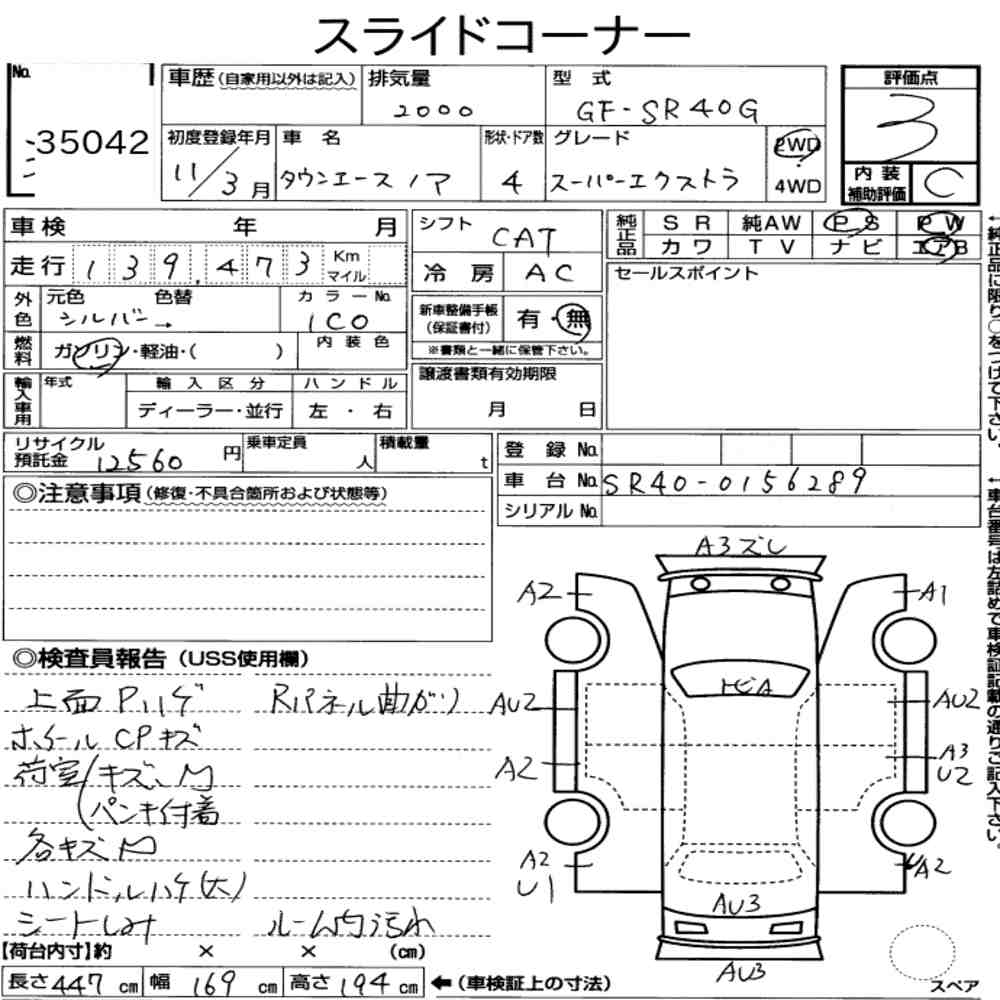 スライドコーナー
No. 35042
車歴(自家用以外は記入) 排気量 2000 型 式 GF-SR40G
初度登録年月 11/3月 車 名 タウンエースノア 形状・ドア数 4 グレード スーパーエクストラ 2WD 4WD
評価点 3
内装補助評価 C
車検 年 月
走行 139,473 Km マイル
外色 元色 シルバー→ 色替 カラーNo. 1C0
燃料 ガソリン・軽油・( ) 内装色
輸入車用 年式 輸入区分 ディーラー・並行 ハンドル 左・右
シフト CAT
冷房 AC
新車整備手帳(保証書付) 有・無
※書類と一緒に保管下さい。
譲渡書類有効期限
月 日
純正品 SR 純AW PS PW
カワ TV ナビ エアB
セールスポイント
←純正品に限り○をつけて下さい。
リサイクル預託金 12560円 乗車定員 人 積載量 t
登録No.
車台No. SR40-0156289
シリアルNo.
←車台番号は左詰めで車検証記載の通りご記入下さい。
◎注意事項(修復・不具合箇所および状態等)
◎検査員報告(USS使用欄)
上面Pハゲ Rパネル曲がり
ホイールCPキズ
荷室(キズ、凹
(パンキ付着
各キズ凹
ハンドルハゲ(大)
シートしみ ルーム内汚れ
A3ズレ
A2 A1
トビA
AU2 AU2
A2 A3 U2
A2 U1 A2
AU3
AU3
スペア
【荷台内寸】約 × × (cm)
長さ447cm 幅169cm 高さ194cm ←(車検証上の寸法)